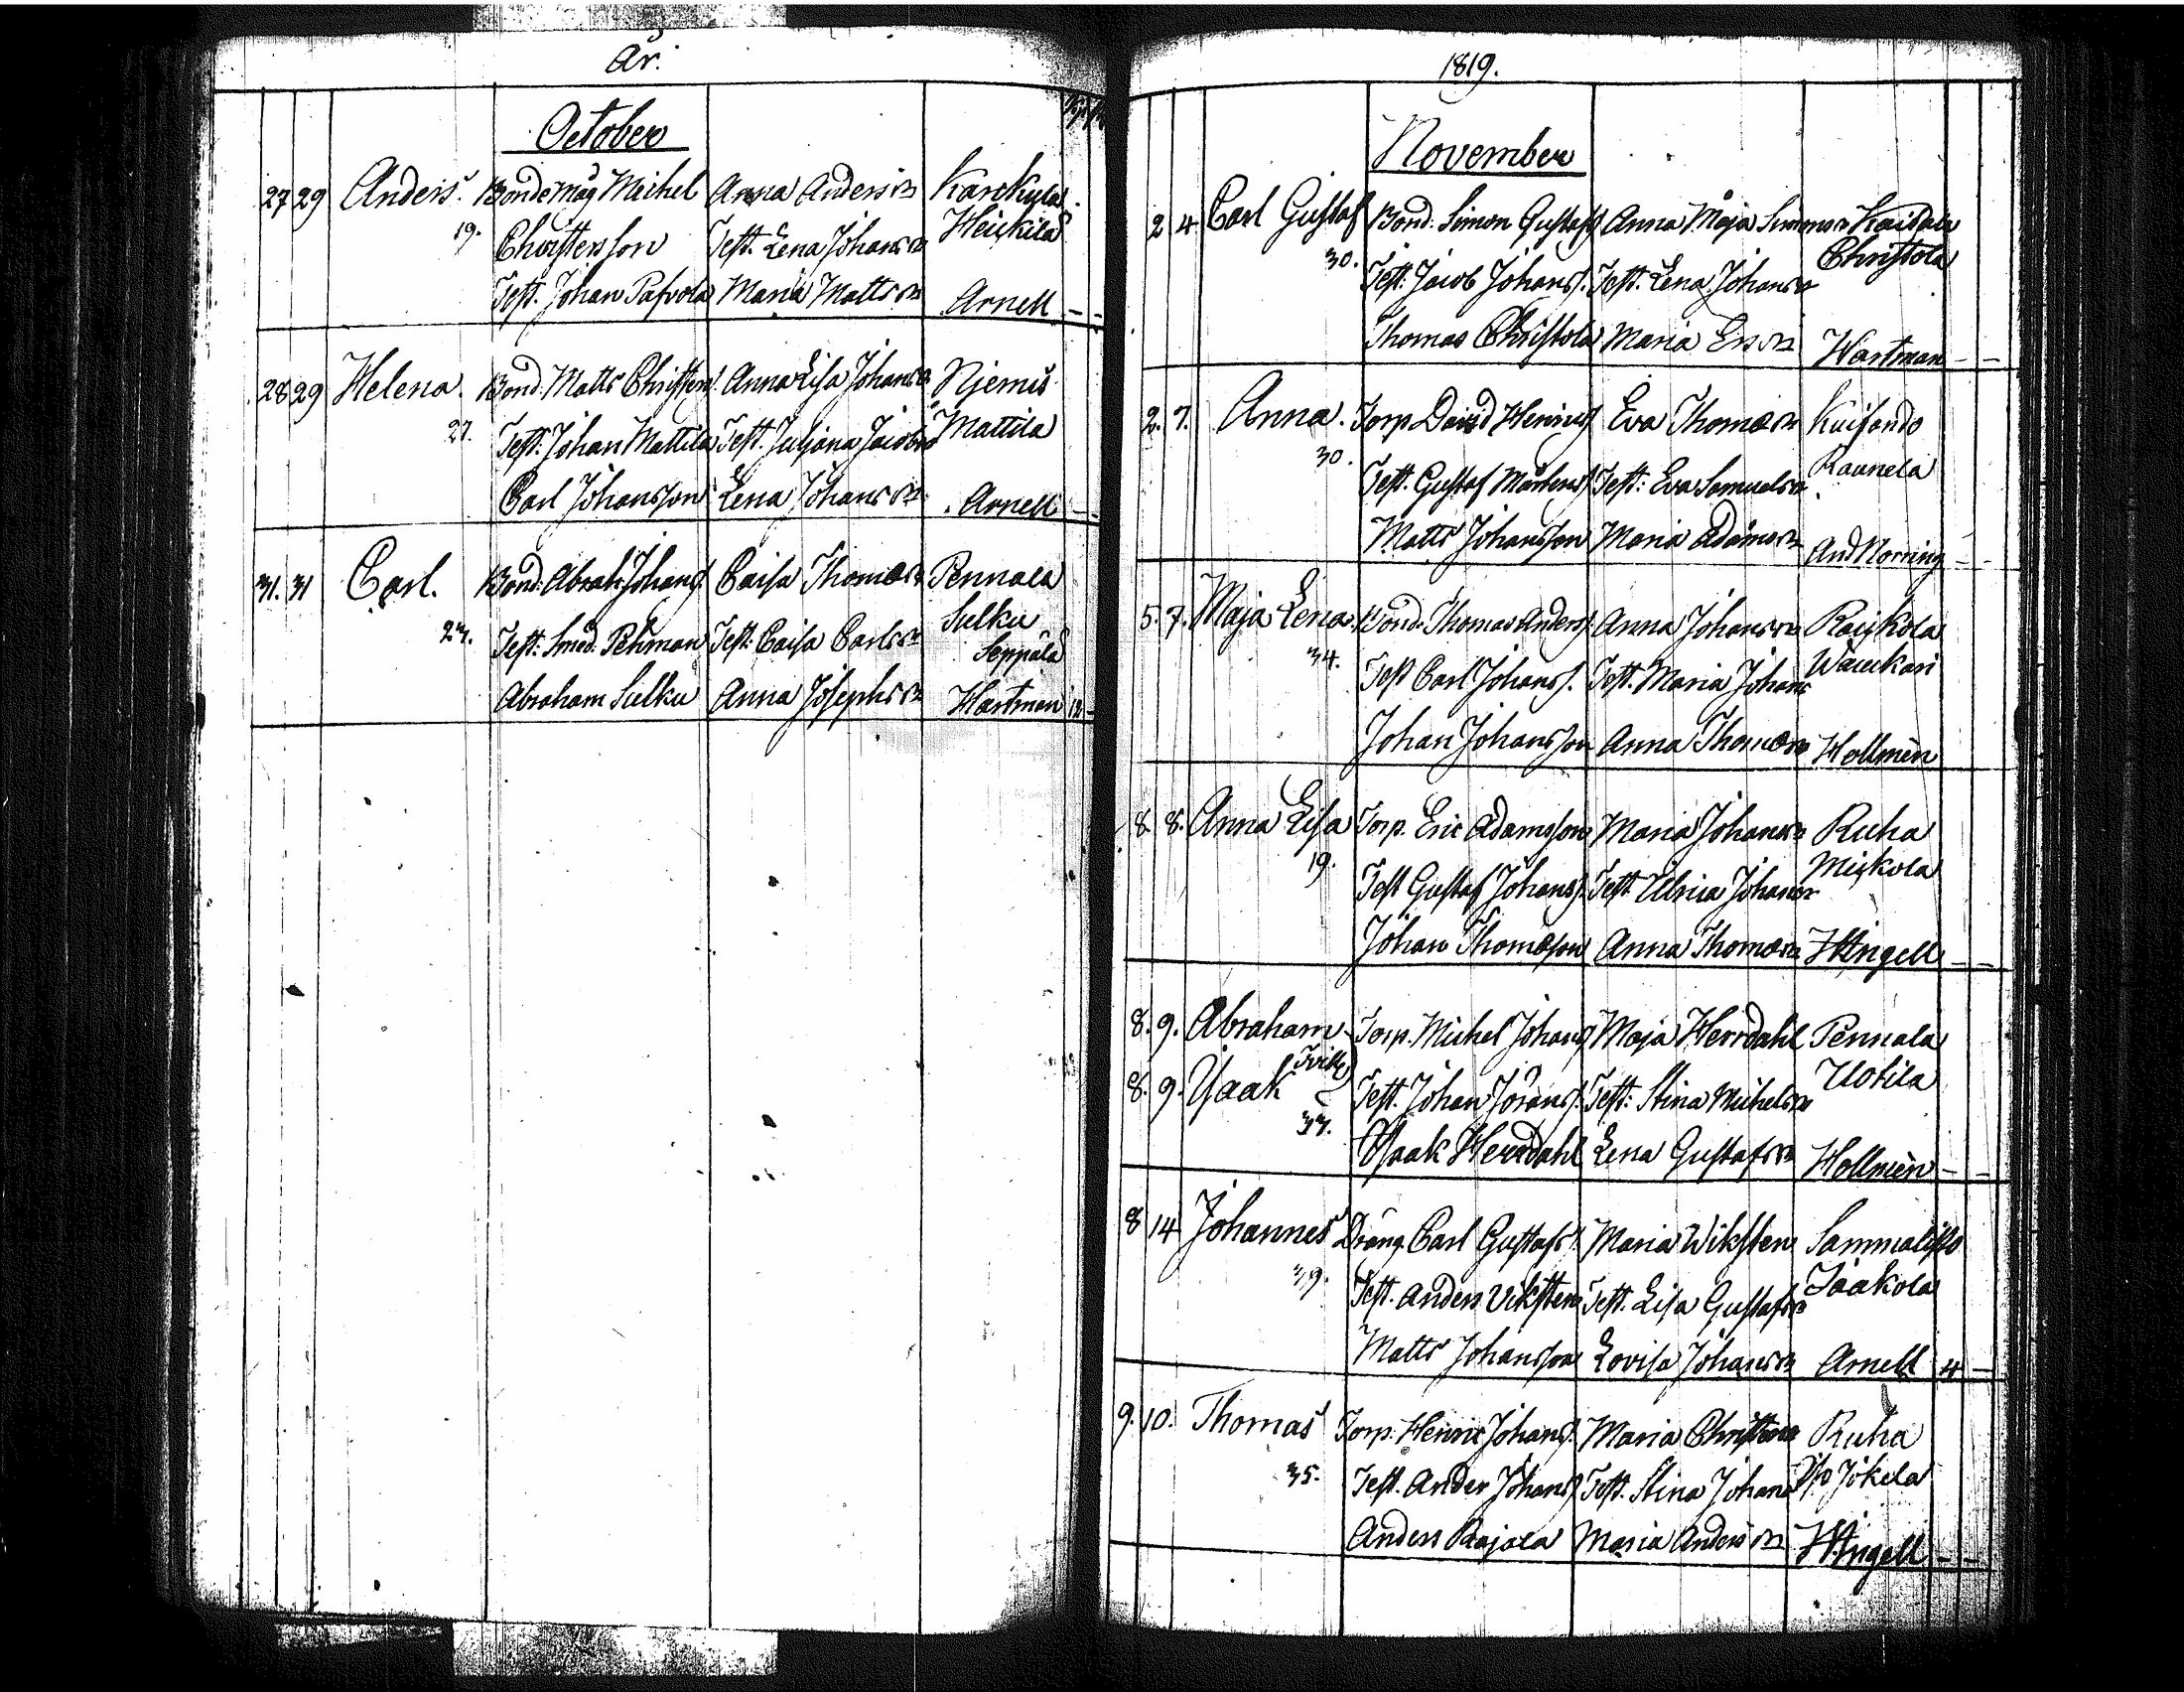 År.
October
27 29 Anders. Bondemåg Michel Anna Andersdr Karckyla
19. Christersson Test. Lena Johansdr Heickilä
Test. Johan Pafvola Maria Mattsdr Arnell - -
28 29 Helena. Bond. Matts Christers. Anna Lisa Johansdr Njemis
27. Test. Johan Mattila Test. Juliana Jacobsdr Mattila
Carl Johansson Lena Johansdr Arnell - -
31. 31 Carl. Bond. Abrah. Johans. Caisa Thomasdr Pennala
Test. Smed. Pehrman Test. Caisa Carlsdr Sulku Seppälä
Abraham Sulku Anna Josephsdr Hartman 12 -
1819.
November
2 4 Carl Gustaf Bond. Simon Gustafs. Anna Maja Simonsdr
30. Test. Jacob Johans. Test. Lena Johansdr Christola
Thomas Christola Maria Ersdr Wartman - -
2. 7. Anna. Torp. David Henrics. Eva Thomasdr
30. Test. Gustaf Mårtens. Test. Eva Samuelsdr Raunela
Matts Johansson Maria Adamsdr And Norring - -
5. 7. Maja Lena. Bond. Thomas Anders. Anna Johansdr Raickola
34. Test Carl Johans. Test. Maria Johansdr
Johan Johansson Anna Thomasdr Hollmén
8. 8. Anna Lisa Torp. Eric Adamsson Maria Johansdr Ruha
19. Test Gustaf Johans. Test. Ulrica Johansdr Mickola
Johan Thomasson Anna Thomasdr H Ingell - -
8. 9. Abraham Torp. Michel Johans. Maja Herrdahl Pennala
8. 9. Isaak Tvill. Test. Johan Jörans. Test. Stina Michelsdr Uotila
Isaak Herrdahl Lena Gustafsdr Hollmén - -
8 14 Johannes Dräng. Carl Gustafs. Maria Wiksten Sammalisto
39. Test. Anders Viksten Test. Lisa Gustafsdr Jaakola
Matts Johansson Lovisa Johansdr Arnell 4 -
9. 10. Thomas Torp. Henric Johans. Maria Christersdr Ruha
35. Test. Anders Johans. Test. Stina Johansdr Jokela
Anders Rajala Maria Andersdr H Ingell - -